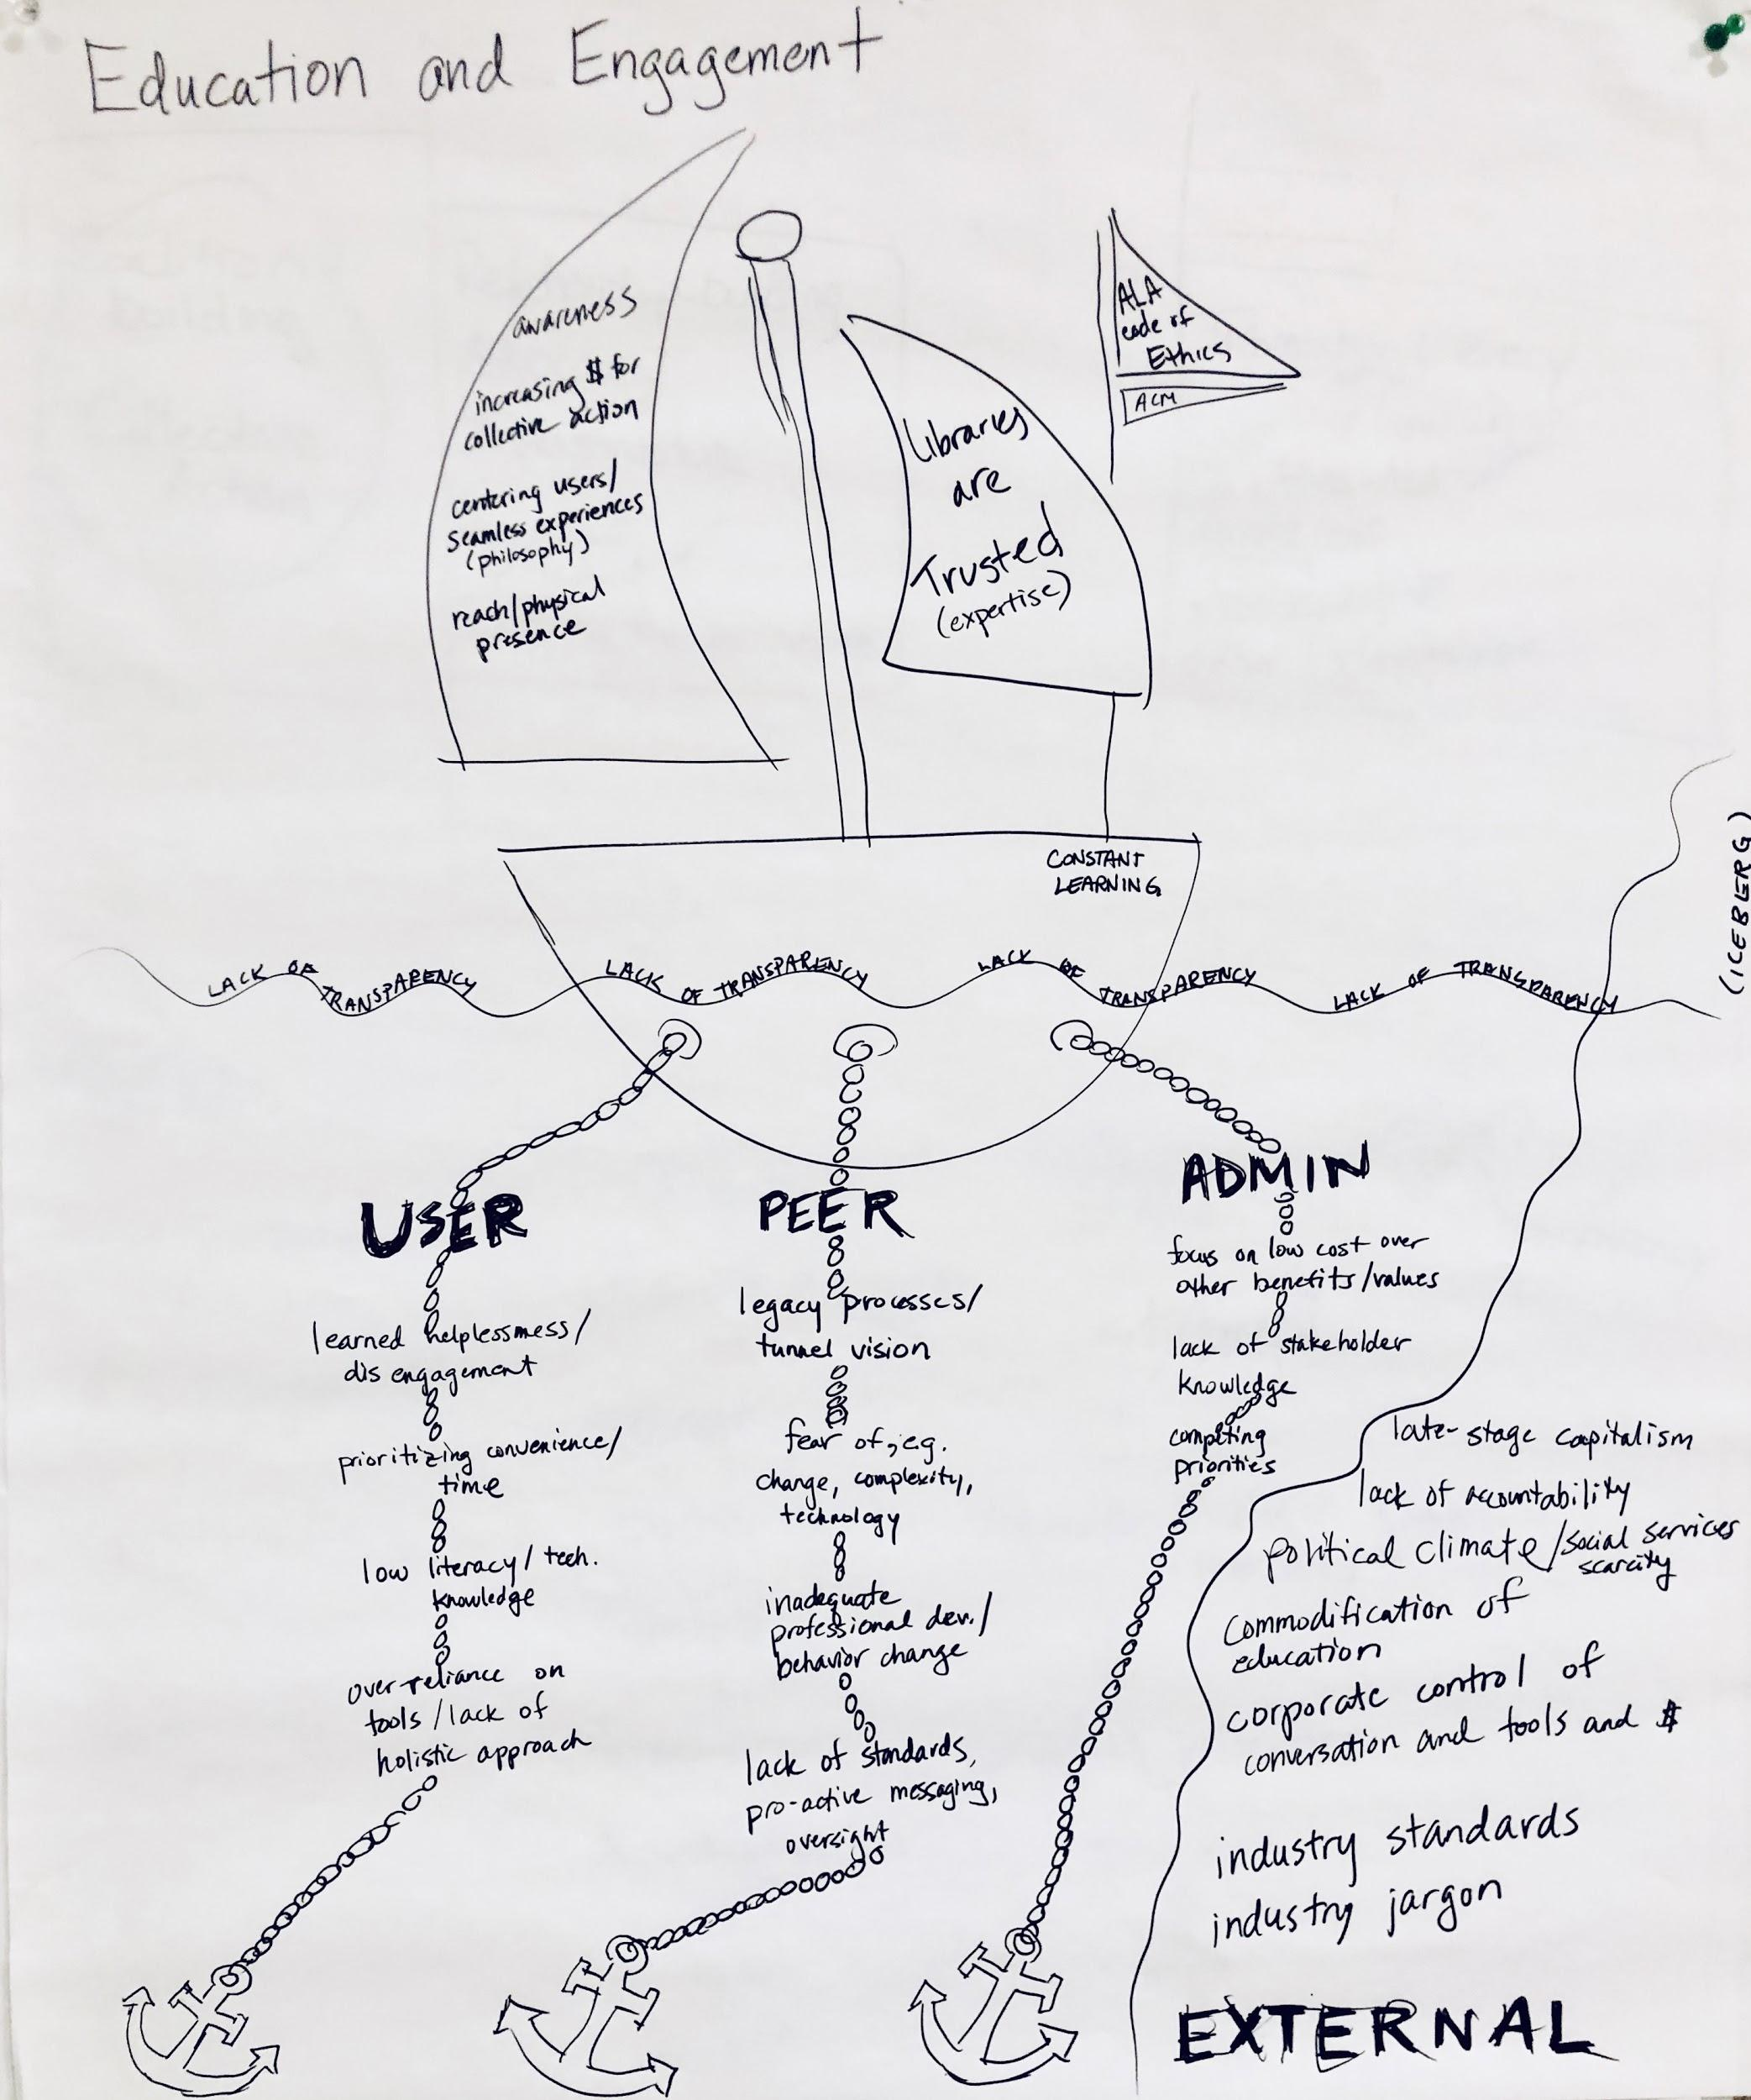 Education and Engagement
awareness
increasing $ for
collective action
centering users/
seamless experiences
(philosophy)
reach/physical
presence
Libraries
are
Trusted
(expertise)
ALA
code of
Ethics
ACM
CONSTANT
LEARNING
(ICEBERG)
LACK OF TRANSPARENCY LACK OF TRANSPARENCY LACK OF TRANSPARENCY LACK OF TRANSPARENCY
USER
learned helplessness/
disengagement
prioritizing convenience/
time
low literacy/tech.
knowledge
over-reliance on
tools/lack of
holistic approach
PEER
legacy processes/
tunnel vision
fear of, e.g.
change, complexity,
technology
inadequate
professional dev./
behavior change
lack of standards,
pro-active messaging,
oversight
ADMIN
focus on low cost over
other benefits/values
lack of stakeholder
knowledge
competing
priorities
late-stage capitalism
lack of accountability
political climate/social services
scarcity
commodification of
education
corporate control of
conversation and tools and $
industry standards
industry jargon
EXTERNAL